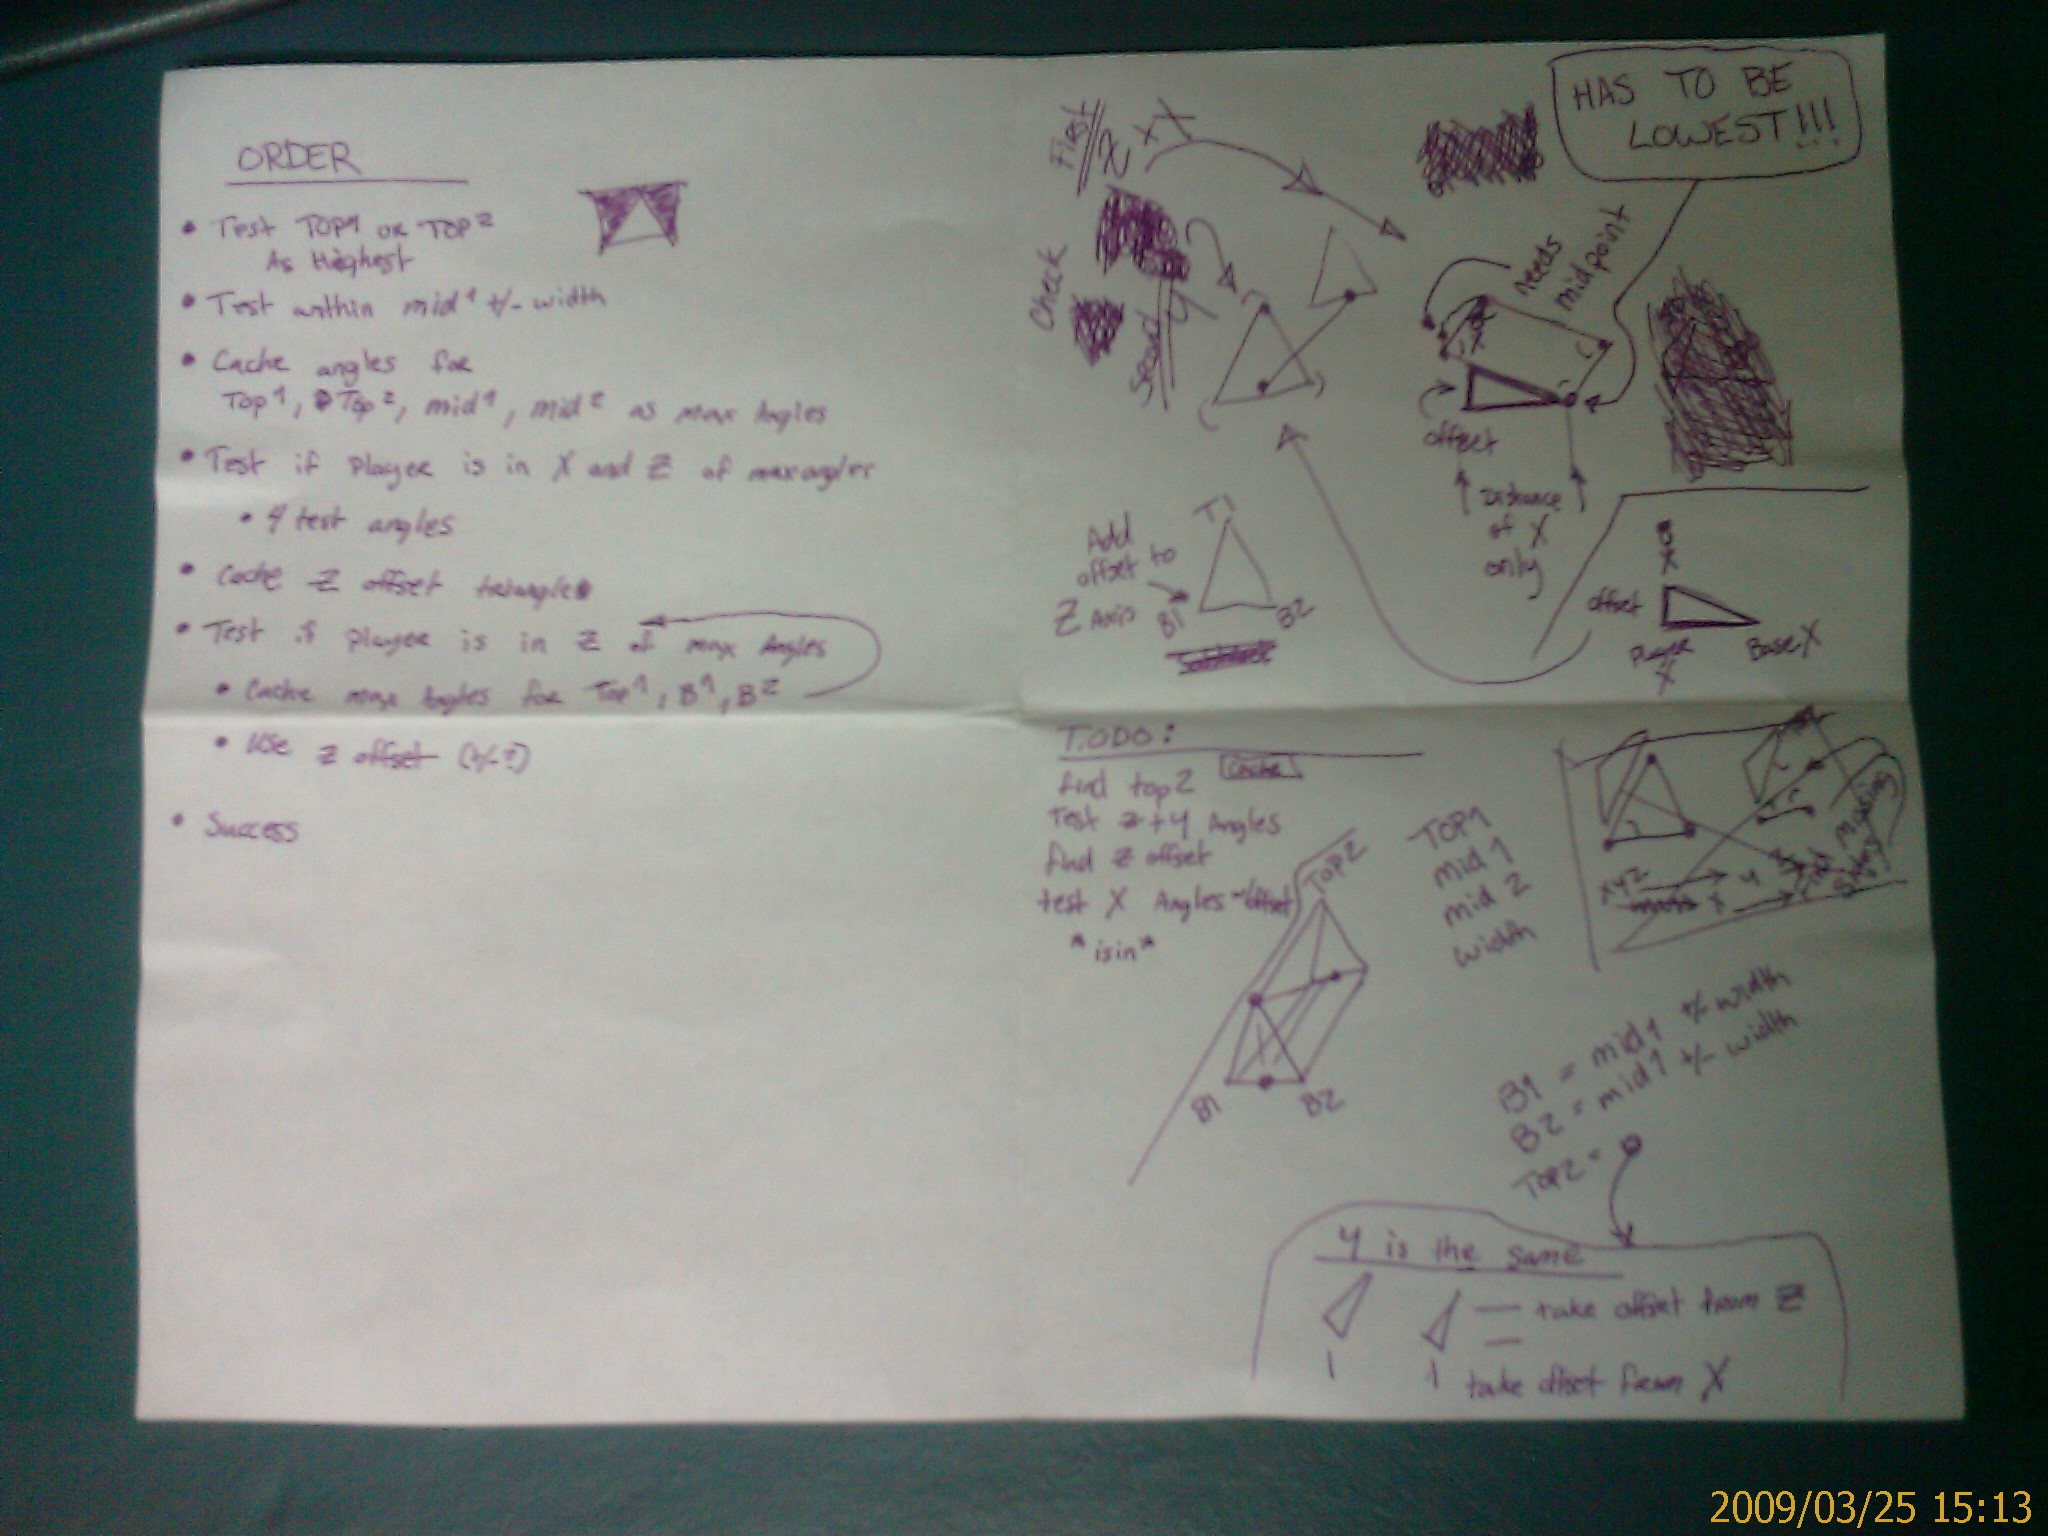 ORDER
• Test TOP1 or TOP2
As Highest
• Test within mid1 +/- width
• Cache angles for
Top1, Top2, mid1, mid2 as max angles
• Test if Player is in X and Z of max angles
• 4 test angles
• Cache Z offset triangle
• Test if player is in Z of max Angles
• Cache max angles for Top1, B1, B2
• Use Z offset (+/-?)
• Success
First
Z
X
Check
Second
Y
HAS TO BE
LOWEST!!!
needs
midpoint
offset
Distance
of X
only
Add
offset to
Z Axis
T1
B1
B2
B
X
offset
Player
X
Base X
TODO:
find top2
Cache
Test Z+Y Angles
find Z offset
test X Angles -offset
"isin"
TOP2
B1
B2
TOP1
mid 1
mid 2
width
XYZ
Y
X
find
missing
B1 = mid1 +/- width
B2 = mid1 +/- width
TOP2 =
Y is the same
take offset from Z
take offset from X
2009/03/25 15:13